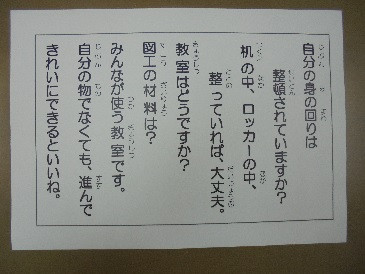 自分の身の回りは
整頓されていますか？
机の中、ロッカーの中、
整っていれば、大丈夫。
教室はどうですか？
図工の材料は？
みんなが使う教室です。
自分の物でなくても、進んで
きれいにできるといいね。